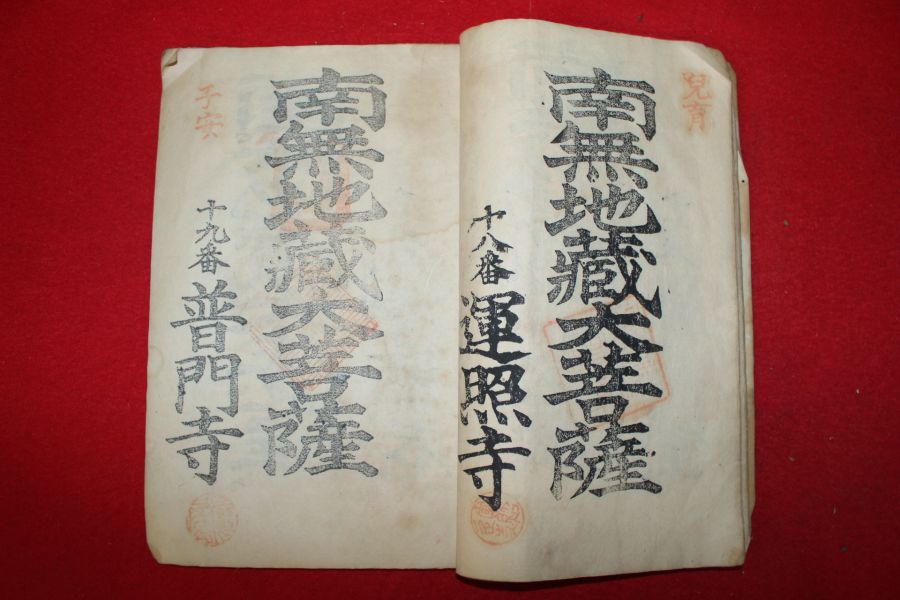 兒育
南無地藏大菩薩
十八番 運照寺
南無地藏大菩薩
子安
十九番 普門寺